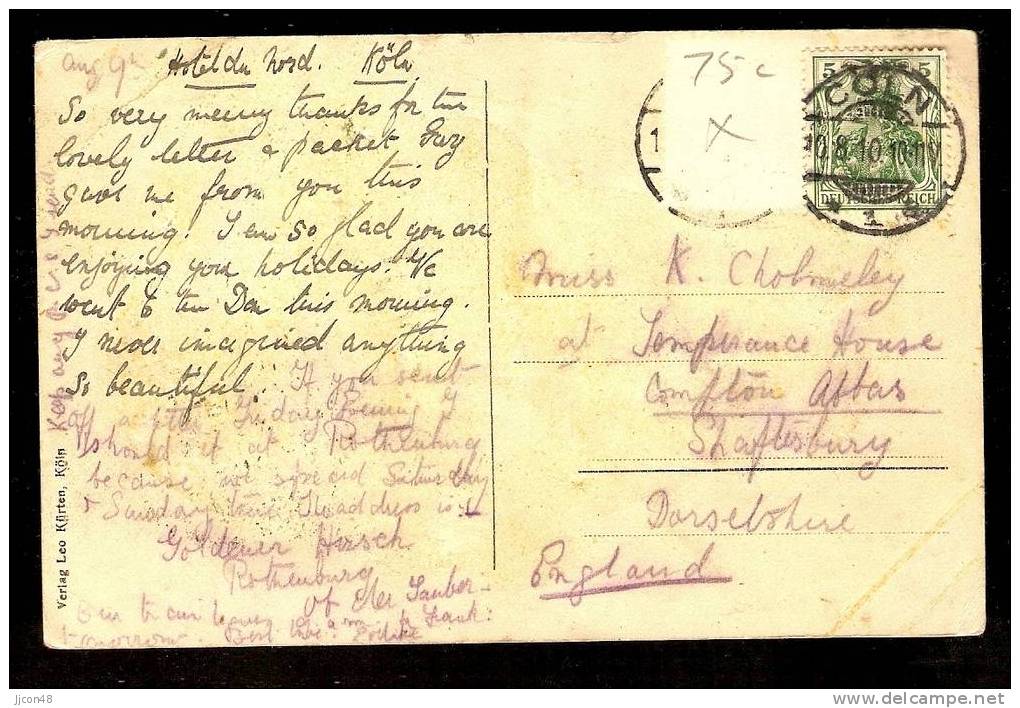 Aug 9th
Hotel du Nord. Köln
So very many thanks for the
lovely letter & packet Guy
gave me from you this
morning. I am so glad you are
enjoying your holidays. We
went to the Dom this morning.
I never imagined anything
so beautiful. If you sent
off after Friday Evening
should it at Rothenburg
because we spend Saturday
& Sunday there The address is:-
Goldener Hirsch
Rothenburg
ob der Tauber-
tomorrow. Best love
Keep any
Verlag Leo Kürten, Köln
75c
X
1
5 5
CÖLN
10.8.10.10-11V
DEUTSCHES REICH
1
Miss K. Cholmeley
at Temperance House
Compton Abbas
Shaftesbury
Dorsetshire
England
jjcon48
www.delcampe.net